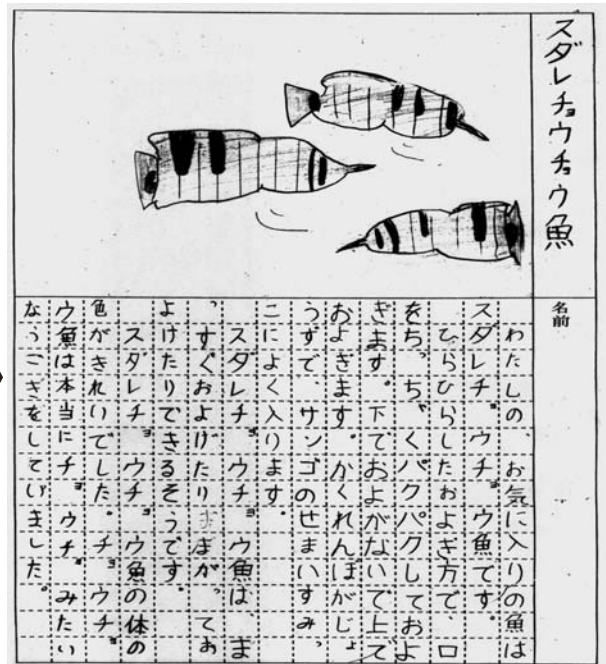 スダレチョウチョウ魚
名前
わたしの、お気に入りの魚は
スダレチョウチョウ魚です。
ひらひらしたおよぎ方で、口
をちっちゃくパクパクしておよ
ぎます。下でおよがないで上で
およぎます。かくれんぼがじょ
うずで、サンゴのせまいすみっ
こによく入ります。
スダレチョウチョウ魚は、ま
っすぐおよげたりまがってお
よけたりできるそうです。
スダレチョウチョウ魚の体の
色がきれいでした。チョウチョ
ウ魚は本当にチョウチョみたい
なうごきをしていました。